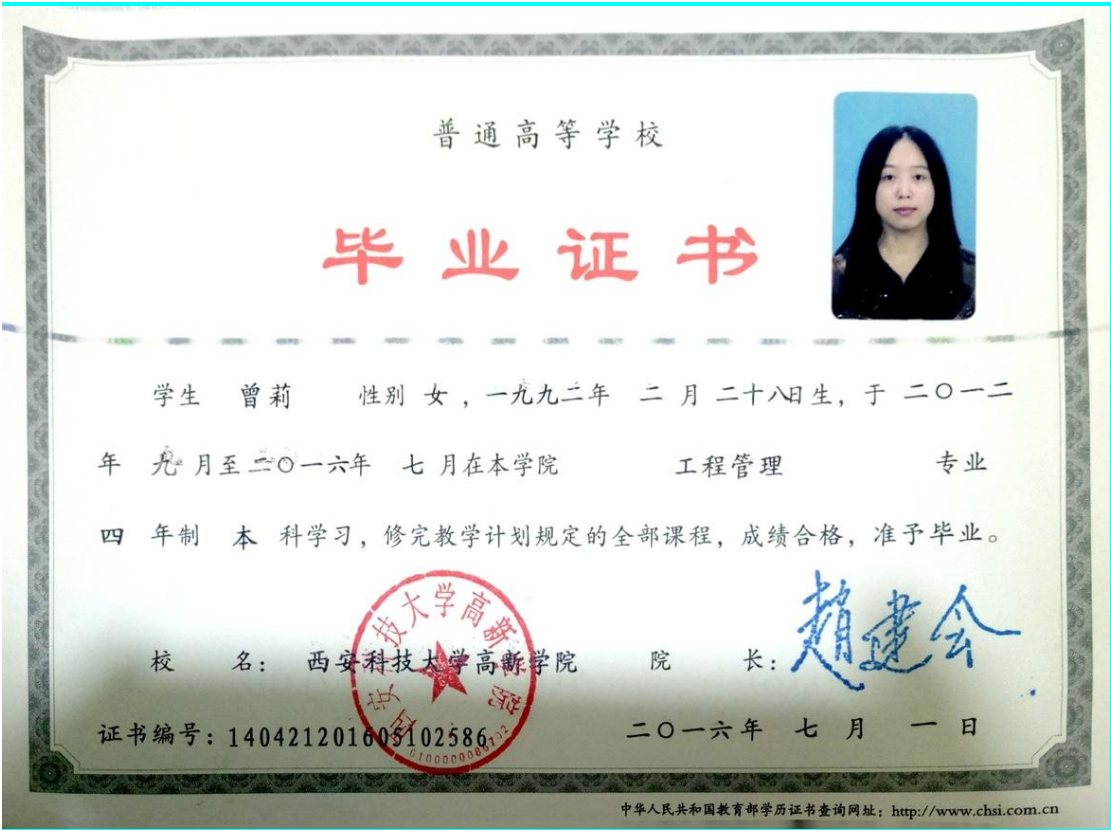 普通高等学校
毕业证书
学生 曾莉 性别 女，一九九二年 二 月 二十八日生，于 二〇一二
年 九 月至 二〇一六年 七 月在本学院 工程管理 专业
四 年制 本 科学习，修完教学计划规定的全部课程，成绩合格，准予毕业。
西安科技大学高新学院
校 名：西安科技大学高新学院 院 长：赵建会
证书编号：140421201605102586 二〇一六年 七 月 一 日
中华人民共和国教育部学历证书查询网址：http://www.chsi.com.cn